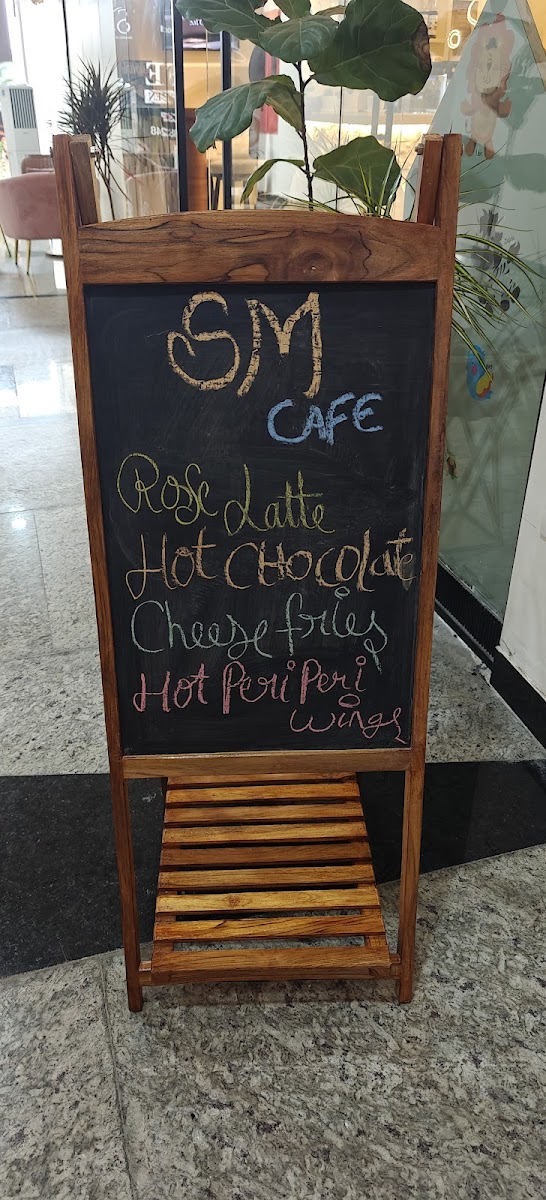 SM
CAFE
Rose Latte
Hot CHOCOLate
Cheese fries
Hot Peri Peri
wings